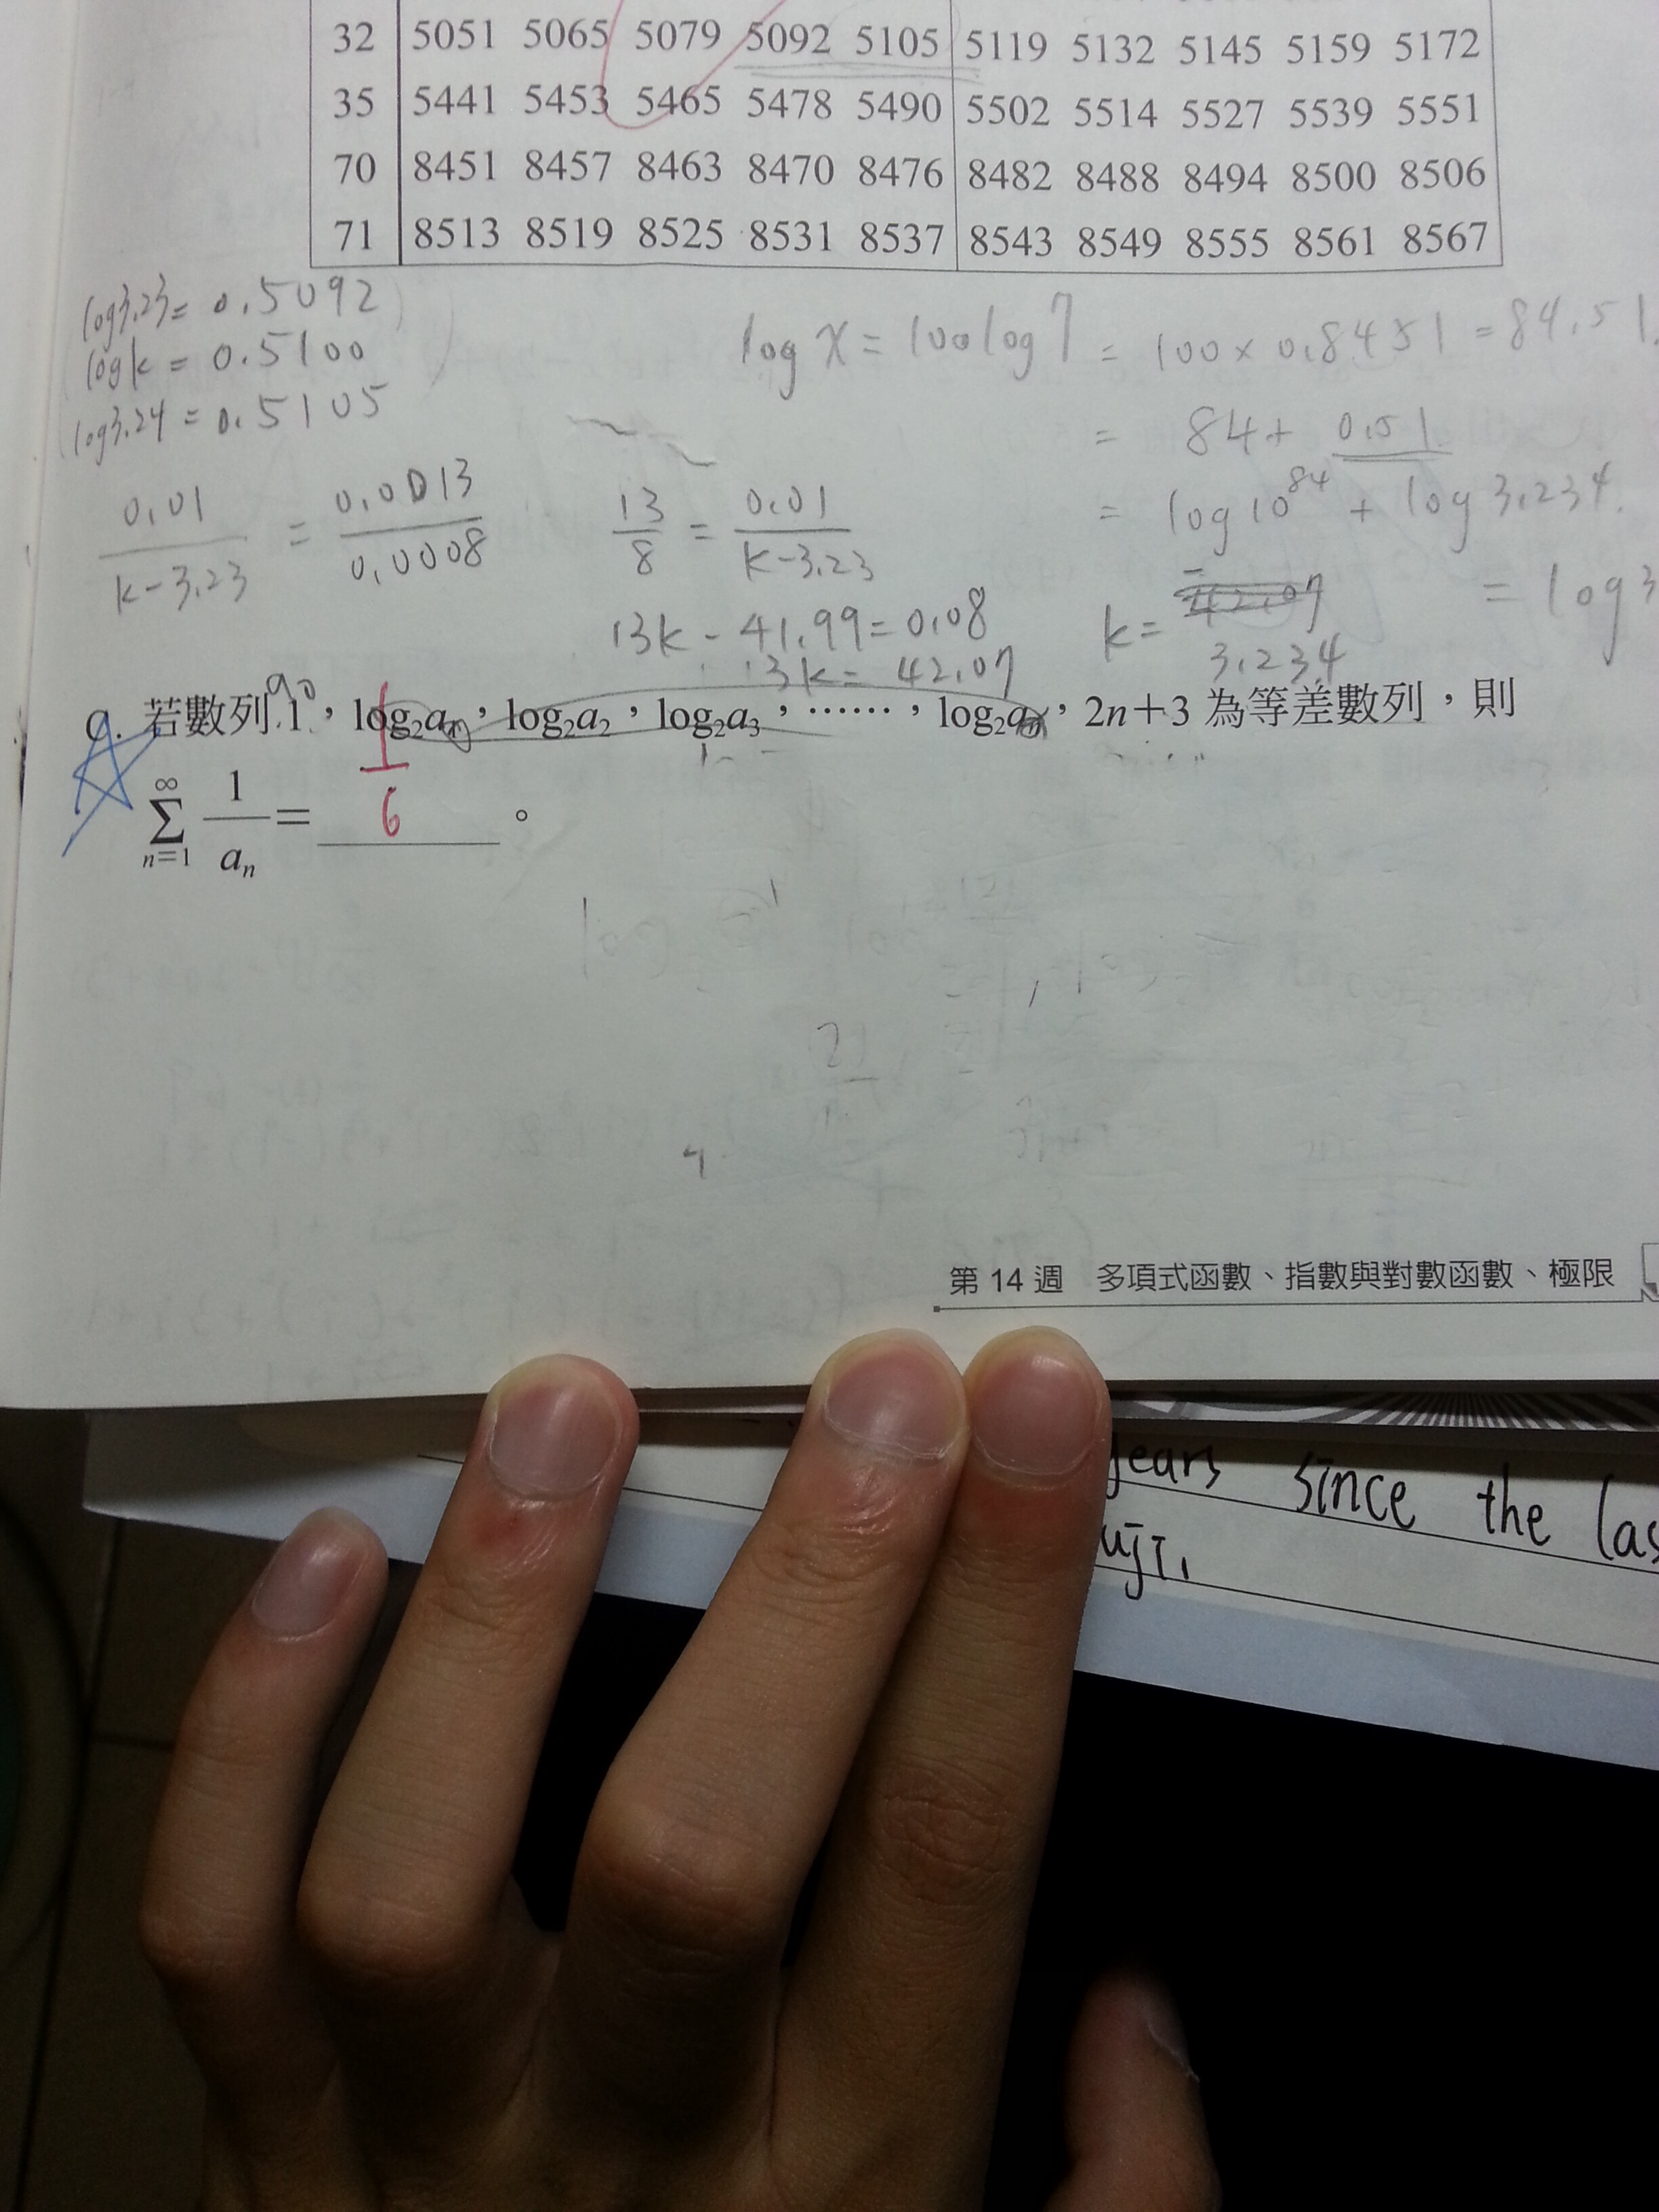 32 5051 5065 5079 5092 5105 5119 5132 5145 5159 5172
35 5441 5453 5465 5478 5490 5502 5514 5527 5539 5551
70 8451 8457 8463 8470 8476 8482 8488 8494 8500 8506
71 8513 8519 8525 8531 8537 8543 8549 8555 8561 8567
log3.23 = 0.5092
logk = 0.5100
log3.24 = 0.5105
log x = 100log7 = 100×0.8451 = 84.51
= 84+ 0.51
= log10^84 + log3.234
= log3
0.01/(k-3.23) = 0.0013/0.0008
13/8 = 0.01/(k-3.23)
13k - 41.99 = 0.08
13k = 42.07
k = 3.234
C. 若數列 1,log₂a₁,log₂a₂,log₂a₃,……,log₂aₙ,2n+3 為等差數列,則
∞Σn=1 1/aₙ = 1/6 。
第 14 週 多項式函數、指數與對數函數、極限
years since the las
uji.